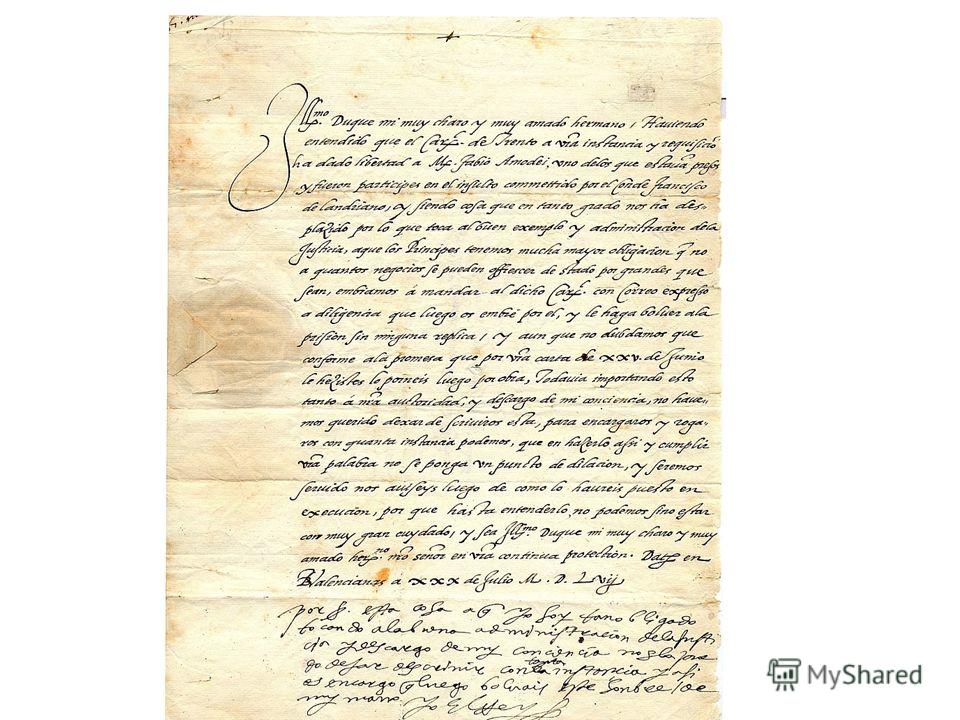 Ill.mo Duque mi muy charo y muy amado hermano, Haviendo
entendido que el Car.l de Trento a vr̃a instancia y requisiciõ
ha dado libertad a M. Fabio Amodei, uno delos que estavã presos
y fueron participes en el insulto commettido por el Conde Francisco
de Landriano, y siendo cosa que en tanto grado nos ha des-
plazido por lo que toca al buen exemplo y administracion dela
Justicia, aque los Principes tenemos mucha mayor obligacion q̃ no
a quantos negocios se pueden offrescer de stado por grandes que
sean, embiamos á mandar al dicho Car.l con Correo expresso
a diligencia que luego os embie por el, y le haga bolver ala
prision sin ninguna replica, y aun que no dubdamos que
conforme ala promesa que por vr̃a carta de xxv. de Junio
le hezistes lo porneis luego por obra, Todavia importando esto
tanto á nr̃a autoridad, y descargo de mi conciencia, no have-
mos querido dexar de scriviros esta, para encargaros y roga-
ros con quanta instancia podemos, que en hazerlo assi y cumplir
vr̃a palabra no se ponga un puncto de dilacion, y seremos
servido nos aviseys luego de como lo havreis puesto en
execucion, por que hasta entenderlo no podemos sino estar
con muy gran cuydado, y sea Ill.mo Duque mi muy charo y muy
amado her.no nr̃o señor en vr̃a continua protection. Dat. en
Valencianas á xxx de Julio M. D. Lvij
por ser esta cosa a q̃ yo soy tan obligado
tocando a la buena administracion de la justi
cia y descargo de my conciencia no
do desar de scrivir con tanta instancia y asi
os encargo q̃ luego bolvais este honbre
my mano Yo el Rey
MyShared